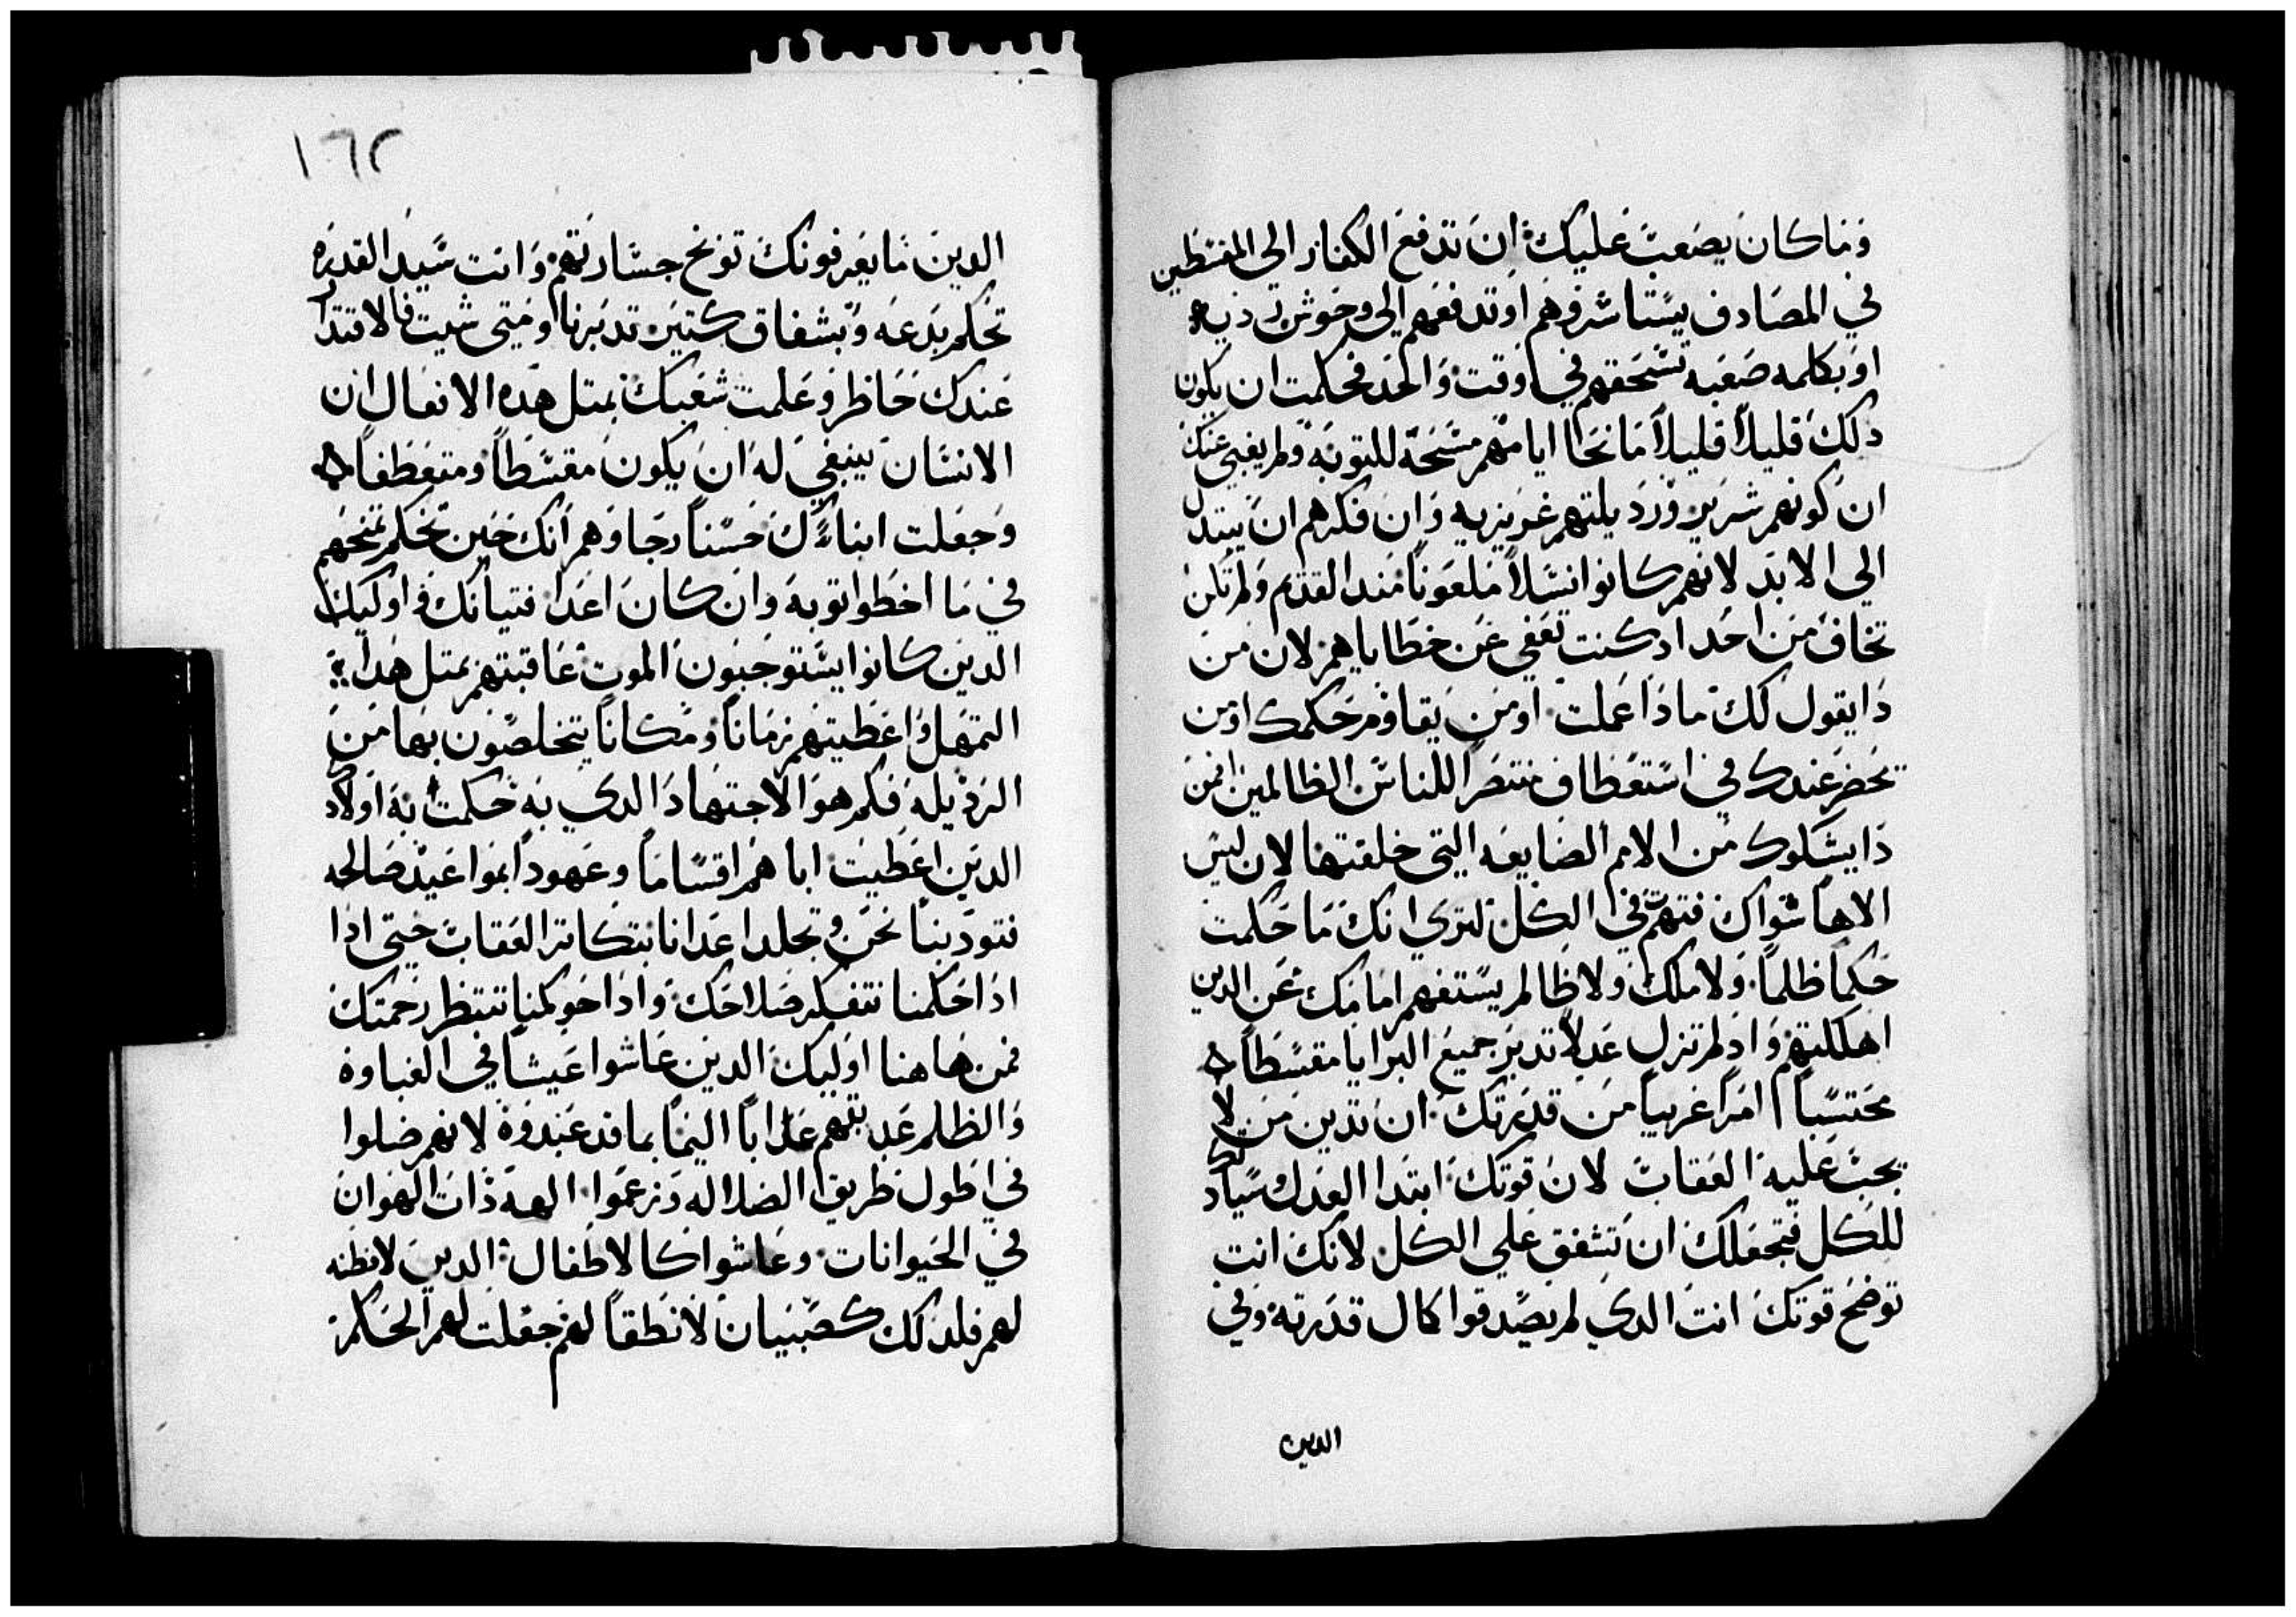 وما كان يصعب عليك ان تدفع الكفار الي المقسطين
في المصادف يستاسروهم او تدفعهم الي وحوش رديه
او بكلمه صعبه تسحقهم في وقت واحد فحكمت ان يكون
دلك قليلاً قليلاً مانحا اياهم مسحة للتوبة ولم يغبي عنك
ان كونهم شرير ورديلتهم غريزيه وان فكرهم ان يبتدل
الي الابد لانهم كانوا نسلاً ملعوناً مند القدم ولم تكن
تخاف من احد اد كنت تعفي عن خطاياهم لان من
دا يقول لك مادا عملت او من يقاوم حكمك او من
يحضر عندك في استعطاف منتصراً للناس الظالمين او من
دا يشكوك من الامم الضايعه التي خلقتها لان ليس
الاهاً سواك فتهتم في الكل لتري انك ما حكمت
حكماً ظلماً ولا ملك ولا ظالم يستفهم امامك عن الدين
اهلكتهم واد لم تزل عدلاً تدبر جميع البرايا مقسطاً
محتسباً امراً غريباً من قدرتك ان تدين من لا
يجب عليه العقاب لان قوتك ابتدا العدل وسيادتك
للكل فتجعلك ان تشفق علي الكل لانك انت
توضح قوتك انت الدي لم يصدقوا كمال قدرته وفي
الدين
١٦٢
الدين ما يعرفونك توبخ جسارتهم وانت سيد القدره
تحكم بدعه وبشفاق كتير تدبرنا ومتي شيت فالاقتدار
عندك حاظر وعلمت شعبك بمتل هده الافعال ان
الانسان ينبغي له ان يكون مقسطاً ومتعطفاً
وجعلت ابناءك حسناً رجاوهم انك حين تحكم تمنحهم
في ما اخطوا توبة وان كان اعدا فتيانك اوليك
الدين كانوا يستوجبون الموت عاقبتهم بمتل هدا
التمهل واعطيتهم زماناً ومكاناً يتخلصون بها من
الرديله فكم هو الاجتهاد الدي به حكمت به اولادك
الدين اعطيت اباهم اقساماً وعهوداً بمواعيد صالحه
فتودبنا نحن وتجلد اعدانا بتكاتر العقاب حتي ادا
ادا حكمنا نتفكر صلاحك وادا حوكمنا ننتظر رحمتك
فمن هاهنا اوليك الدين عاشوا عيشاً في الغباوة
والظلم عدبتهم عداباً اليماً بما قد عبدوة لانهم ضلوا
في اطول طريق الضلاله وزعموا الهة ذات الهوان
في الحيوانات وعاشوا كالاطفال الدين لا فطنه
لهم فلدلك كصبيان لا نطقاً لهم جعلت لهم الحكم